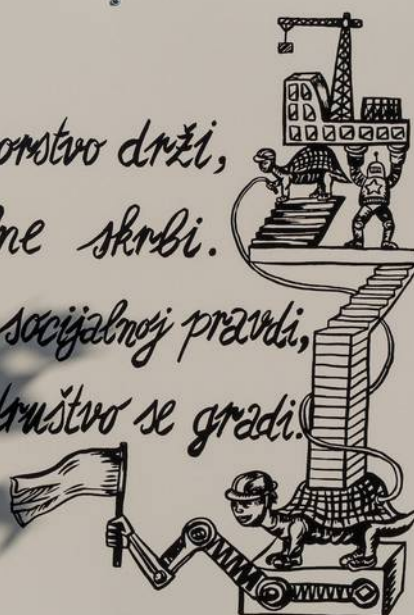 orstvo drži,
ne skrbi.
socijalnoj pravdi,
društvo se gradi.